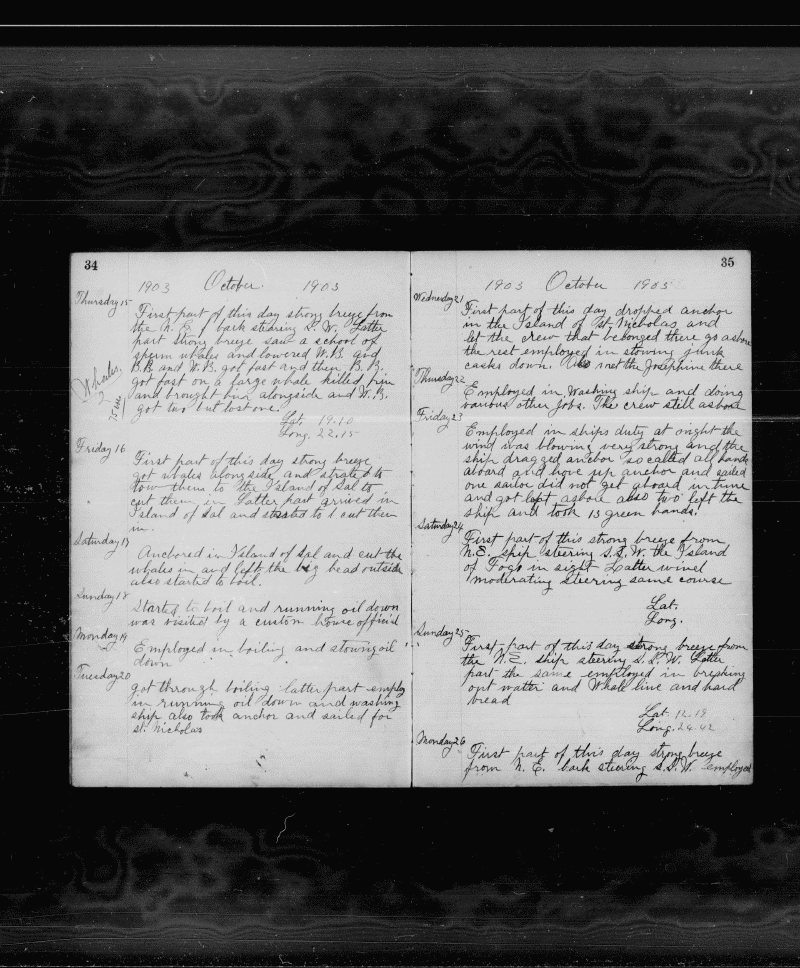 34
1903 October. 1903
Thursday 15
First part of this day strong breeze from
the N. E. bark stearing S. W. Latter
part strong breeze saw a school of
sperm whales and lowered W.B. and
B.B and W.B. got fast and then B.B.
got fast on a large whale killed him
and brought him alongside and W.B.
got two but lost one.
Whales.
2
Lat. 19.10
Long. 22.15
Friday 16
First part of this day strong breeze
got whales alongside and strated to
tow them to the Island of Sal to
cut them in Latter part arrived in
Island of Sal and started to cut them
in.
Saturday 17
Anchored in Island of Sal and cut the
whales in and left the big head outside
also started to boil.
Sunday 18
Started to boil and running oil down
was visited by a custom house official
Monday 19
Employed in boiling and stowing oil
down
Tuesday 20
got through boiling latter part employ
in running oil down and washing
ship also took anchor and sailed for
St. Nicholas
35
1903 October 1903
Wednesday 21
First part of this day dropped anchor
in the Island of St. Nicholas and
let the crew that belonged there go ashore
the rest employed in stowing junk
casks down. Also met the Josephine there
Thursday 22
Employed in Washing ship and doing
various other jobs. The crew still ashore
Friday 23
Employed in ships duty at night the
wind was blowing very strong and the
ship dragged anchor so called all hands
aboard and hove up anchor and sailed
one sailor did not get aboard in time
and got left ashore also two left the
ship and took 13 green hands.
Saturday 24
First part of this strong breeze from
N.E. ship steering S.S.W. the Island
of Fogo in sight Latter wind
moderating steering same course
Lat.
Long.
Sunday 25
First part of this day strong breeze from
the N.E. ship steering S.S.W. Latter
part the same employed in breaking
out watter and Whale line and hard
bread
Lat. 12.19
Long. 24.42
Monday 26
First part of this day strong breeze
from N. E. bark steering S.S.W. employed